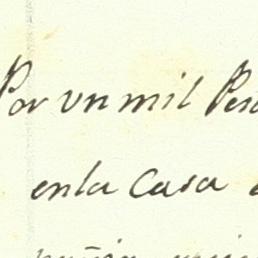 Por un mil Pes
enla Casa